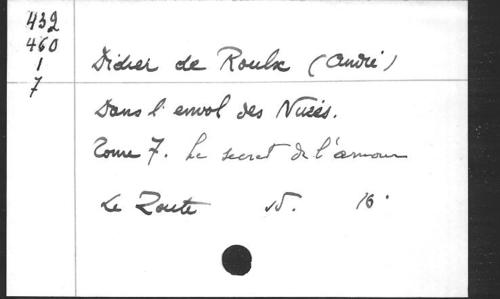 432
460
1
7
Didier de Roulx (André)
Dans l'envol des Nuées.
Tome 7. Le secret de l'amour
Le Zoute sd. 16°